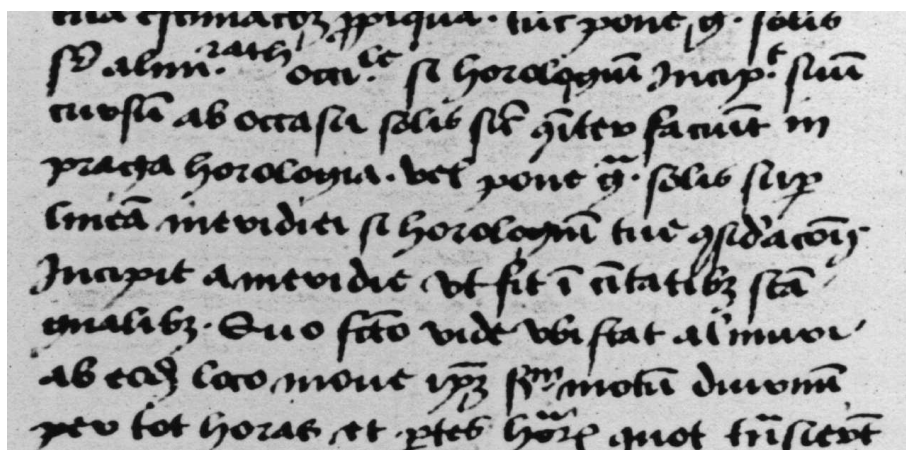 tua estimatōꝫ ꝓpiqua · tūc pone g̃ · solis
sr̄ almi · rath occi · le si horologiuʒ Incipt suū
cursū ab occasu solis sic̄ ꝯīter faciūt in
pragā horologia · vel pone g̃a · solis suꝑ
lineā meridiei si horologiū tue ꝯsid'acōīs
Incipit a meridie vt fit ī cītatibꝫ
qualibꝫ · Quo fc̄to vide vbi stat almuri
ab eod loco moue ipꝫ sm motū diurnū
per tot horas et ꝑtes hor̄ꝝ quot trāsierūt